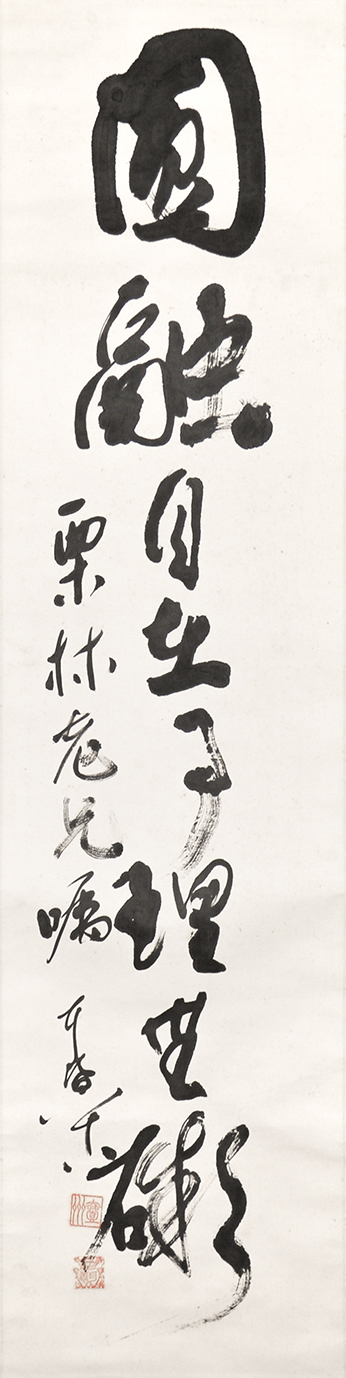 圓融自在事理無礙
栗林老兄嘱